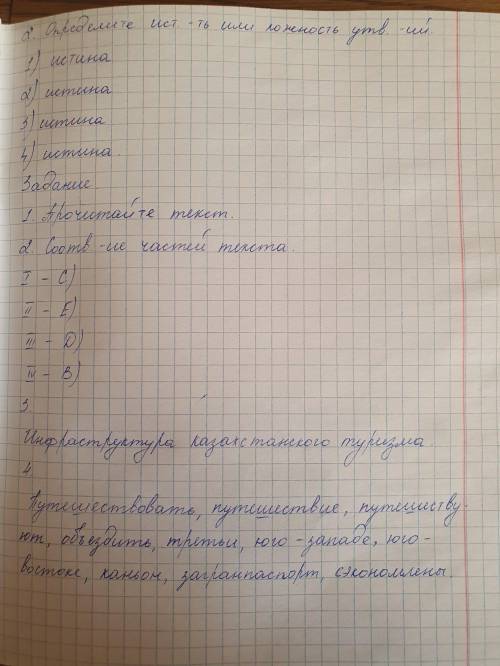 2. Определите ист. -ть или ложность утв. -ий.
1) истина
2) истина
3) истина
4) истина.
Задание.
1. Прочитайте текст.
2. Соотв -ие частей текста.
I - C)
II - E)
III - D)
IV - B)
3.
Инфраструктура казахстанского туризма.
4
Путешествовать, путешествие, путешеству-
ют, объездить, третьи, юго-западе, юго-
востоке, каньон, загранпаспорт, сэкономлены.